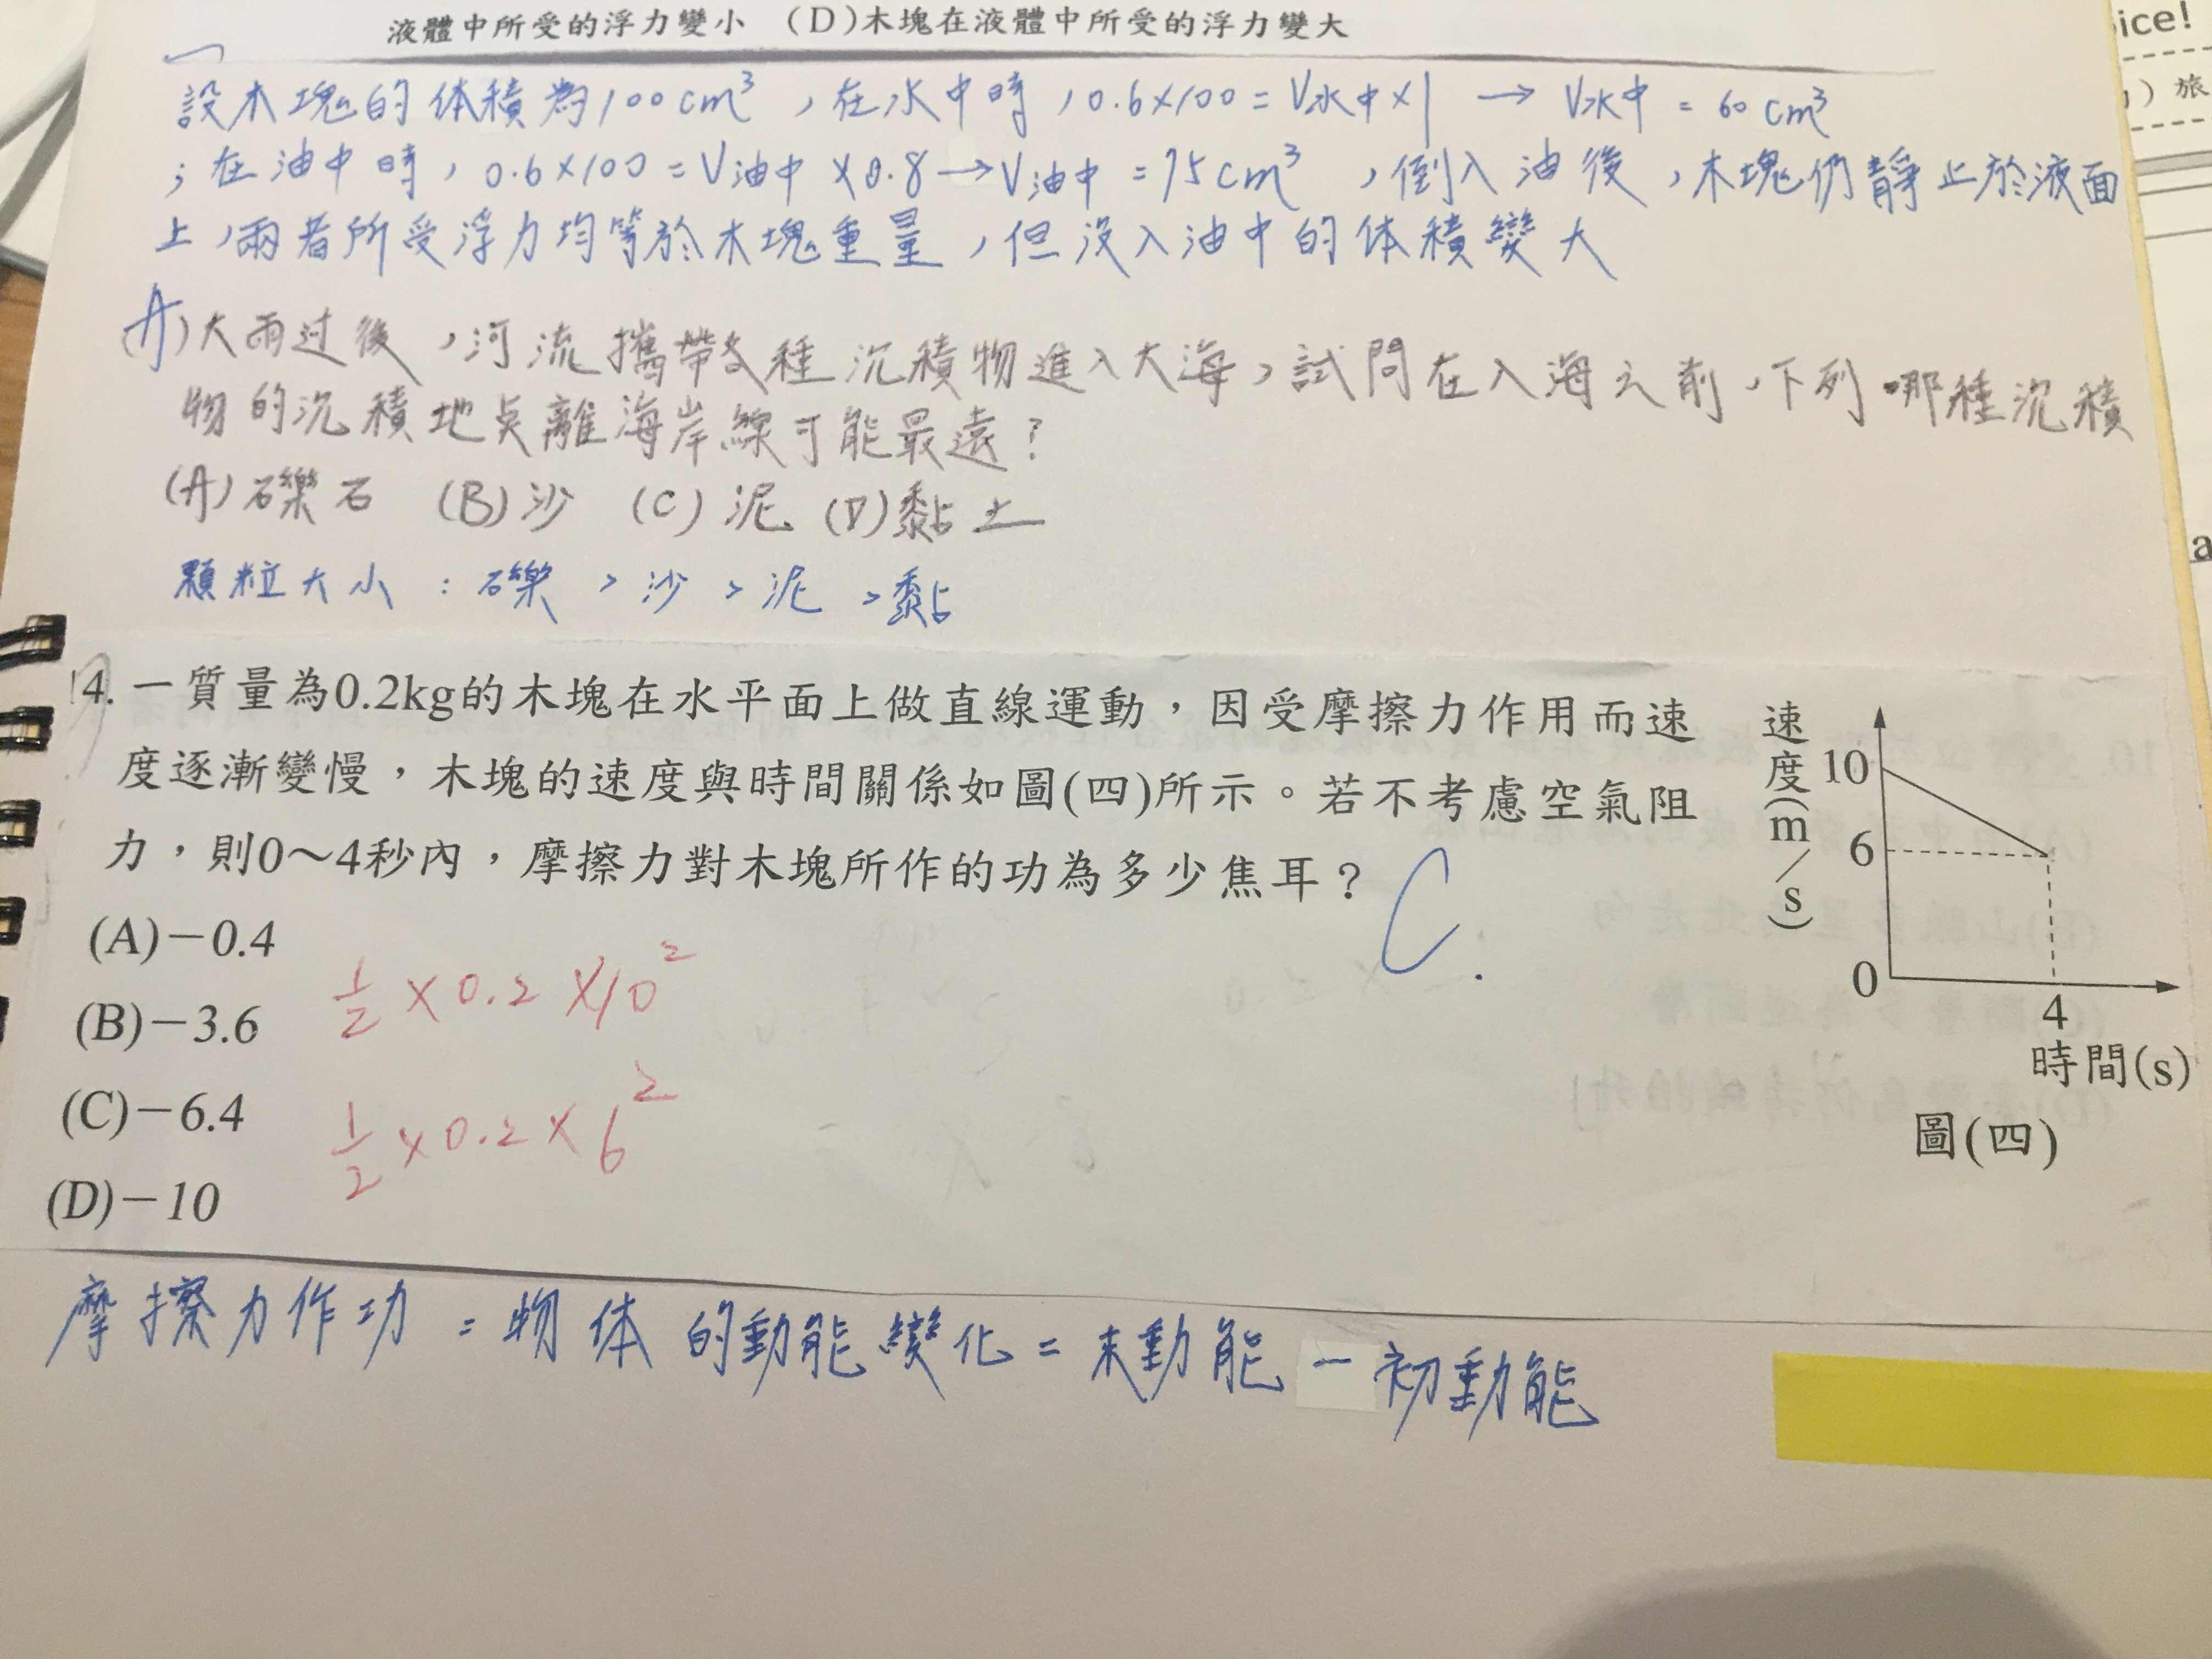 液體中所受的浮力變小 (D)木塊在液體中所受的浮力變大
設木塊的体積為100cm³，在水中時，0.6×100=V水中×1 → V水中=60cm³
；在油中時，0.6×100=V油中×0.8→V油中=75cm³，倒入油後，木塊們靜止於液面
上，兩者所受浮力均等於木塊重量，但沒入油中的体積變大
(A)大雨过後，河流攜帶各種沉積物進入大海，試問在入海之前，下列哪種沉積
物的沉積地点離海岸線可能最遠？
(A)礫石 (B)沙 (C)泥 (D)黏土
顆粒大小：礫>沙>泥>黏
14. 一質量為0.2kg的木塊在水平面上做直線運動，因受摩擦力作用而速
度逐漸變慢，木塊的速度與時間關係如圖(四)所示。若不考慮空氣阻
力，則0～4秒內，摩擦力對木塊所作的功為多少焦耳？ C.
(A)－0.4
(B)－3.6
(C)－6.4
(D)－10
½×0.2×10²
½×0.2×6²
速度(m/s)
10
6
0
4
時間(s)
圖(四)
摩擦力作功=物体的動能變化=末動能－初動能
ice!
）旅
a